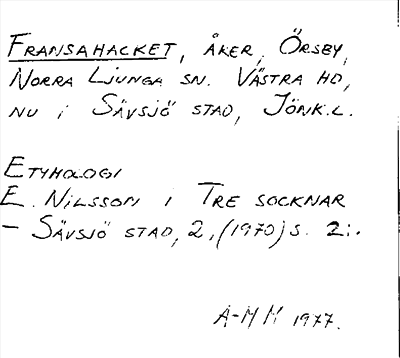 FRANSAHACKET, ÅKER, ÖRSBY,
NORRA LJUNGA SN. VÄSTRA HD,
NU I SÄVSJÖ STAD, JÖNK.L.
ETYMOLOGI
E. NILSSON I TRE SOCKNAR
– SÄVSJÖ STAD, 2, (1970) S. 21.
A-M M 1977.